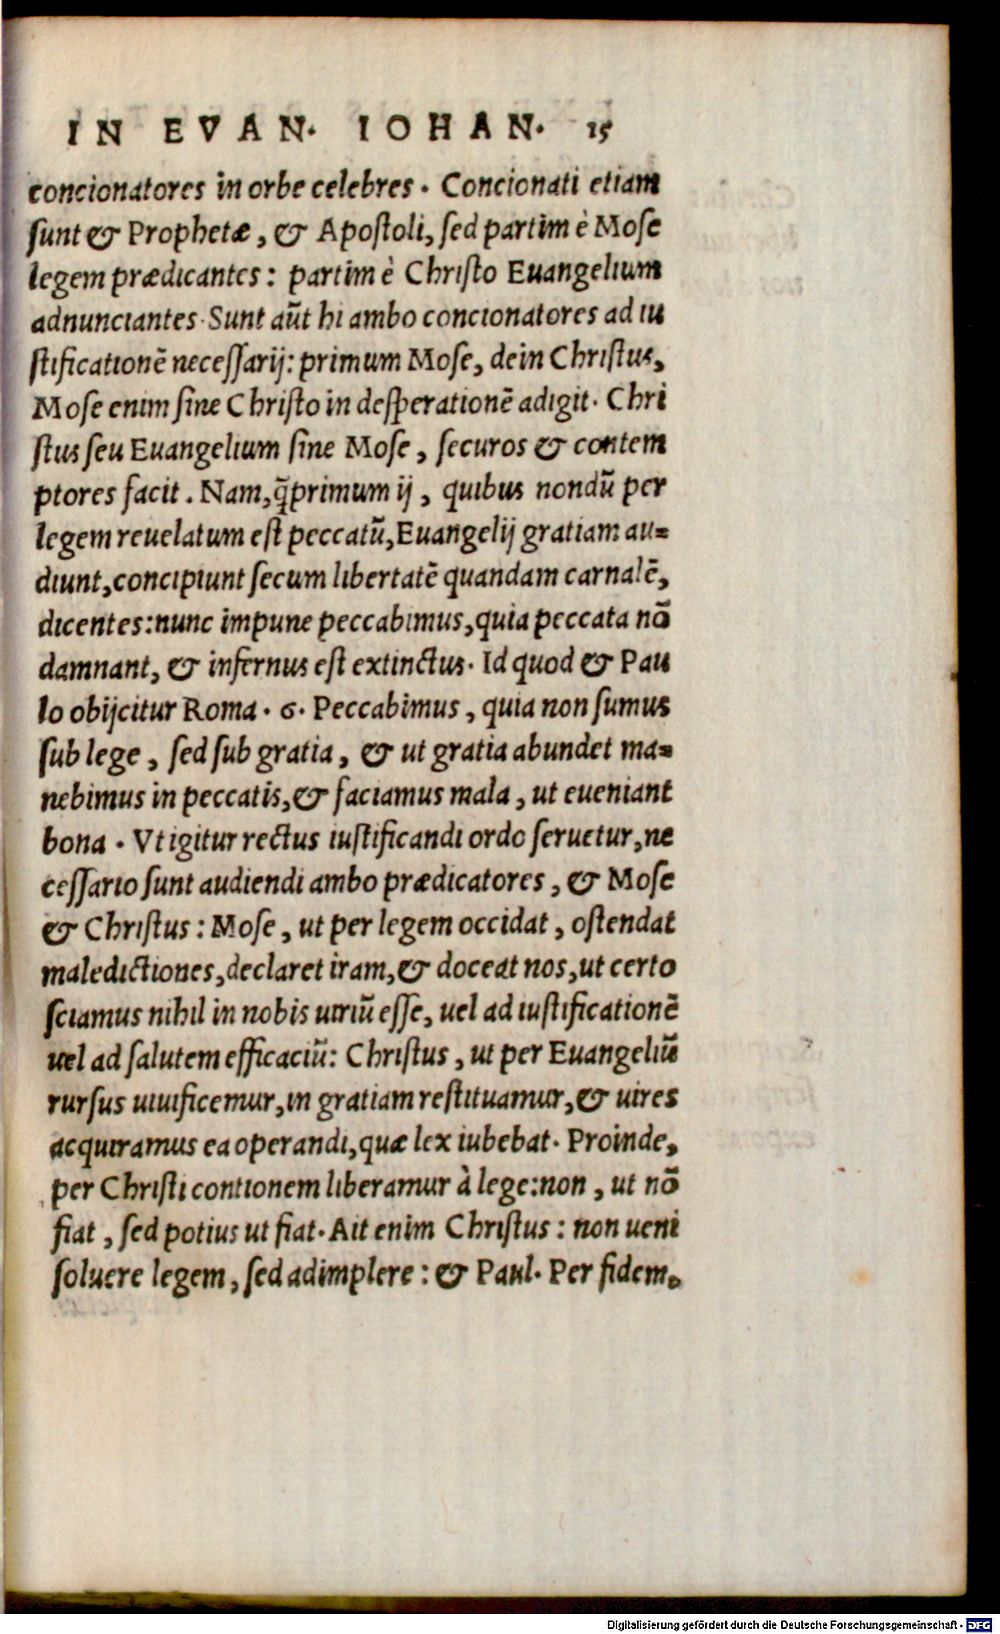 IN EVAN. IOHAN. 15
concionatores in orbe celebres. Concionati etiam
ſunt & Prophetæ, & Apoſtoli, ſed partim è Moſe
legem prædicantes: partim è Chriſto Euangelium
adnunciantes. Sunt aūt hi ambo concionatores ad iu
ſtificationē neceſſarij: primum Moſe, dein Chriſtus,
Moſe enim ſine Chriſto in deſperationē adigit. Chri
ſtus ſeu Euangelium ſine Moſe, ſecuros & contem
ptores facit. Nam, q̄primum ij, quibus nondū per
legem reuelatum eſt peccatū, Euangelij gratiam au=
diunt, concipiunt ſecum libertatē quandam carnalē,
dicentes: nunc impune peccabimus, quia peccata nō
damnant, & infernus eſt extinctus. Id quod & Pau
lo obijcitur Roma. 6. Peccabimus, quia non ſumus
ſub lege, ſed ſub gratia, & ut gratia abundet ma=
nebimus in peccatis, & faciamus mala, ut eueniant
bona. Vt igitur rectus iuſtificandi ordo ſeruetur, ne
ceſſario ſunt audiendi ambo prædicatores, & Moſe
& Chriſtus: Moſe, ut per legem occidat, oſtendat
maledictiones, declaret iram, & doceat nos, ut certo
ſciamus nihil in nobis uiriū eſſe, uel ad iuſtificationē
uel ad ſalutem efficaciū: Chriſtus, ut per Euangeliū
rurſus uiuificemur, in gratiam reſtituamur, & uires
acquiramus ea operandi, quæ lex iubebat. Proinde,
per Chriſti contionem liberamur à lege: non, ut nō
fiat, ſed potius ut fiat. Ait enim Chriſtus: non ueni
ſoluere legem, ſed adimplere: & Paul. Per fidem,
Digitalisierung gefördert durch die Deutsche Forschungsgemeinschaft - DFG